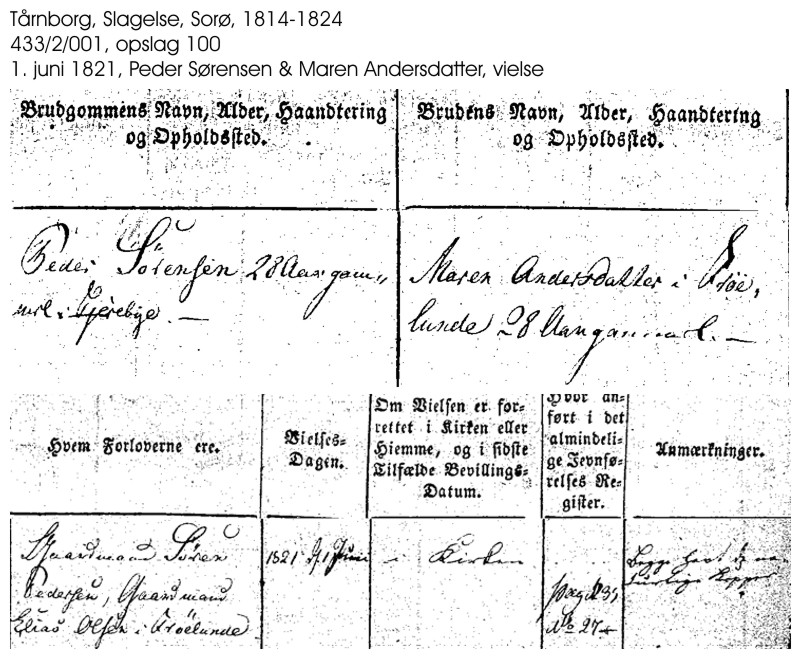 Tårnborg, Slagelse, Sorø, 1814-1824
433/2/001, opslag 100
1. juni 1821, Peder Sørensen & Maren Andersdatter, vielse
Brudgommens Navn, Alder, Haandtering
og Opholdssted.
Brudens Navn, Alder, Haandtering
og Opholdssted.
Peder Sörensen 28 Aar gam„
mel i Gjerebye. —
Maren Andersdatter i Frøe,
lunde 28 Aar gammel. —
Hvem Forloverne ere.
Vielses-
Dagen.
Om Vielsen er for-
rettet i Kirken eller
Hiemme, og i sidste
Tilfælde Bevillings-
Datum.
Hvor an-
ført i det
almindeli-
ge Jevnfø-
relses Re-
gister.
Anmærkninger.
Gaardmand Sören
Pedersen, Gaardmand
Elias Olsen i Frøelunde.
1821 d. 1 Juni
i Kirken
pag 235
No 27
Begge havt de na-
turlige Kopper